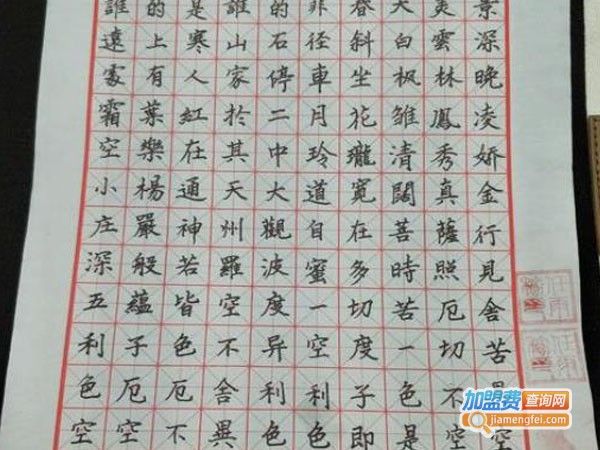 誰的是誰的非春天景
遠上寒山石径斜白雲深
處有人家停車坐枫林晚
霜葉紅於二月花雏鳳凌
空樂在其中玲瓏清秀娇
小楊通天大道寬闊真金
庄嚴神州觀自在菩薩行
深般若羅波蜜多時照見
五蘊皆空度一切苦厄舍
利子色不异空度一切苦
色厄厄舍利利子色不
空空不異色色即是空空
加盟费查询网
jiamengfei.com